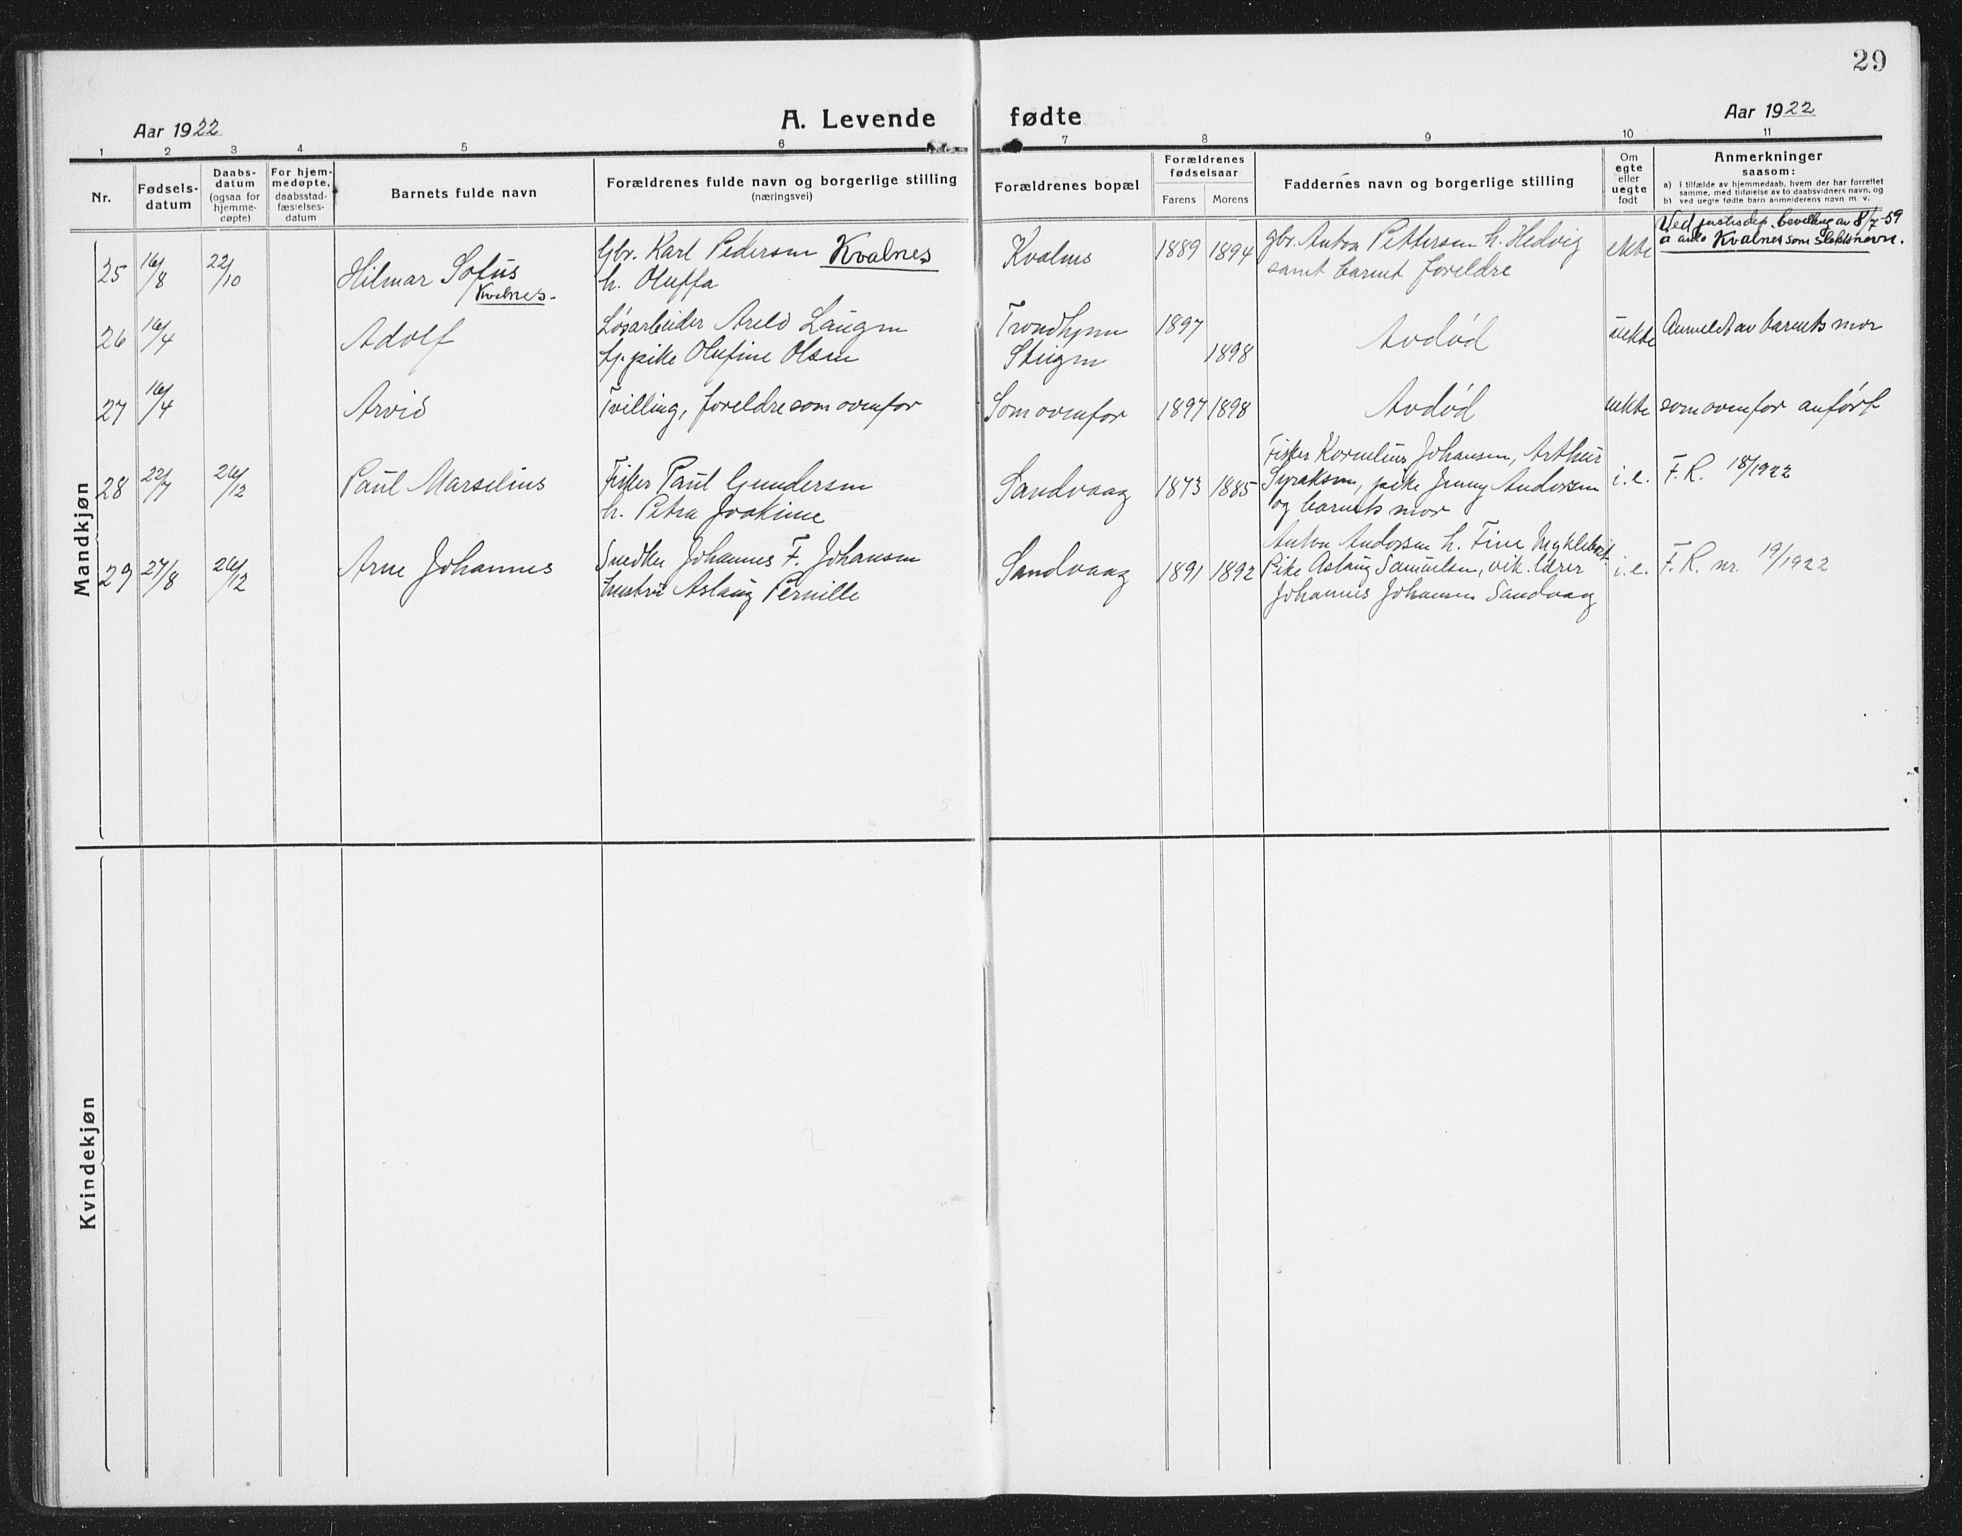 29
Aar 1922
A. Levende fødte
Aar 1922
1 2 3 4 5 6 7 8 9 10 11
Nr.
Fødsels-
datum
Daabs-
datum
(ogsaa for
hjemme-
døpte)
For hjem-
medøpte,
daabsstad-
fæstelses-
datum
Barnets fulde navn
Forældrenes fulde navn og borgerlige stilling
(næringsvei)
Forældrenes bopæl
Forældrenes
fødselsaar
Farens Morens
Faddernes navn og borgerlige stilling
Om
egte
eller
uegte
født
Anmerkninger
saasom:
a) I tilfælde av hjemmedaab, hvem der har forrettet
samme, med tilføielse av to daabsvidners navn, og
b) ved uegte fødte barn anmelderens navn m. v.
Mandkjøn
25 16/8 22/10 Hilmar Sofus
Kvalnes.
Gbr. Karl Pedersen Kvalnes
h. Oluffa
Kvalnes 1889 1894
gbr. Anton Pettersen h. Hedvig
samt barnet foreldre
ekte
Ved justisdep. bevilling av 8/7-59
å anta Kvalnes som slektsnavn.
26 16/4 Adolf
Løsarbeider Langen
pike Olufine Olsen
Trondhjem
Steigen
1897
1898
Avdød
uekte
Anmeldt av barnets mor
27 16/4 Arvid
Tvilling, foreldre som ovenfor
Som ovenfor 1897 1898
Avdød
uekte
som ovenfor anført
28 22/7 26/12 Paul Marselius
Fisker Paul Gundersen
h. Petra Joakime
Sandvaag 1873 1885
Fisker Kornelius Johansen, Arthur
pike Jenny Andersen
og barnets mor
i. e.
F. R. 18/1922
29 27/8 26/12 Arne Johannes
Snedker Johannes F. Johansen
hustru Aslaug Pernille
Sandvaag 1891 1892
Anton Andersen h. Fine Myklebost
Pike Aslaug Samuelsen, vik. lærer
Johannes Johansen Sandvaag
i. e.
F. R. nr. 19/1922
Kvindekjøn